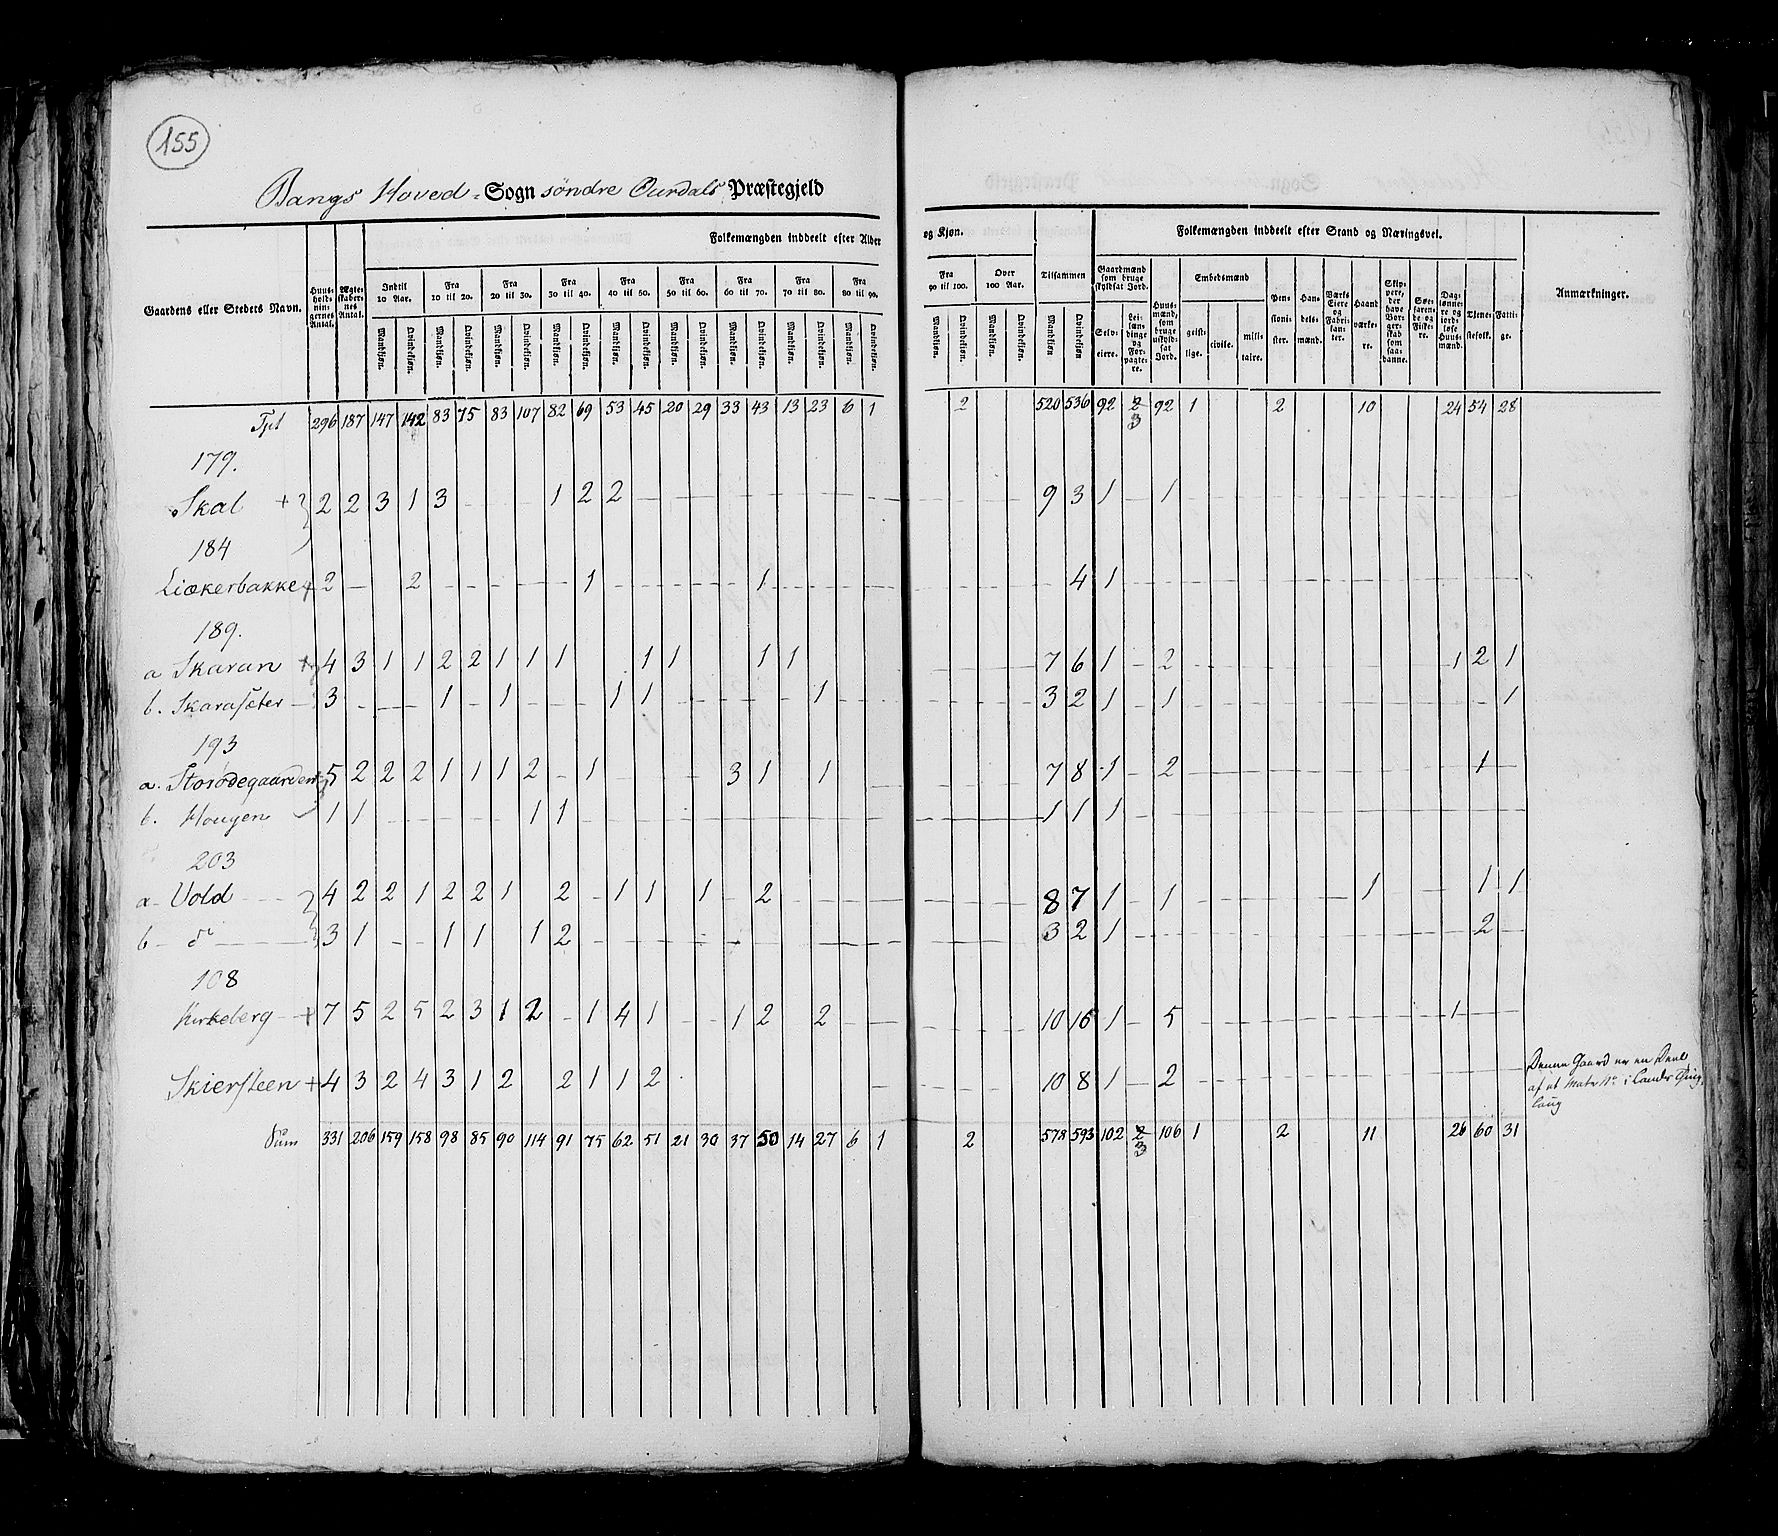 155
Bangs Hoved-Sogn søndre Ourdals Præstegjeld
Folkemængden inddeelt efter Alder og Kjøn.
Folkemængden inddeelt efter Stand og Næringsvei.
Gaardens eller Stedets Navn.
Huusholdningernes Antal.
Ægteskabernes Antal.
Indtil 10 Aar.
Fra 10 til 20.
Fra 20 til 30.
Fra 30 til 40.
Fra 40 til 50.
Fra 50 til 60.
Fra 60 til 70.
Fra 70 til 80.
Fra 80 til 90.
Fra 90 til 100.
Over 100 Aar.
Tilsammen
Mandkjøn. Qvindekjøn. Mandkjøn. Qvindekjøn. Mandkjøn. Qvindekjøn. Mandkjøn. Qvindekjøn. Mandkjøn. Qvindekjøn. Mandkjøn. Qvindekjøn. Mandkjøn. Qvindekjøn. Mandkjøn. Qvindekjøn. Mandkjøn. Qvindekjøn. Mandkjøn. Qvindekjøn. Mandkjøn. Qvindekjøn. Mandkjøn Qvindekjøn
Gaardmænd som bruge skyldsat Jord.
Selveiere.
Leilændinge og Forpagtere.
Huusmænd, som bruge uskyldsat Jord.
Embedsmænd
geistlige.
civile.
militaire.
Pensionister.
Handelsmænd.
Værks Eiere og Fabrikanter.
Haandværkere.
Skippere, der have Borgerskab som saadanne.
Søefarende og Fiskere.
Daglønnere og jordløse Huusmænd.
Tjenestefolk.
Fattige.
Anmærkninger.
Tpt 296 187 147 142 83 75 83 107 82 69 53 45 20 29 33 43 13 23 6 1 2 520 536 92 2 3 92 1 2 10 24 54 28
179.
Skal + 2 2 3 1 3 - - - 1 2 2 - 9 3 1 - 1
184
Liækerbakke + 2 - 2 - 1 - 1 - 4 1
189.
a Skaran + 4 3 1 1 2 2 1 1 1 1 1 1 1 - 7 6 1 - 2 - 1 2 1
b. Skarasæter - 3 - 1 - 1 - 1 1 - 1 - 3 2 1 - 1 - 1
193
a. Storødegaarden 5 2 2 2 1 1 1 2 - 1 - 3 1 - 1 - 7 8 1 - 2 - 1
b. Hougen 1 1 - 1 1 - 1 1 1
203
a- Vold - 4 2 2 1 2 2 1 2 - 1 1 - 1 - 2 - 8 7 1 - 1 - 1 - 1 1
b - do - 3 1 - 1 1 1 2 - 3 2 1 - 2
108
Kirkeberg - + 7 5 2 5 2 3 1 2 - 1 4 1 - 1 2 - 2 - 10 16 1 - 5 - 1
Skiersteen + 4 3 2 4 3 1 2 2 1 1 2 - 10 8 1 - 2
Denne Gaard er en Deel
af et Matr No i Lands Thing
laug
Sum 331 206 159 158 98 85 90 114 91 75 62 51 21 30 37 50 14 27 6 1 2 578 593 102 2 3 106 1 2 11 26 60 31